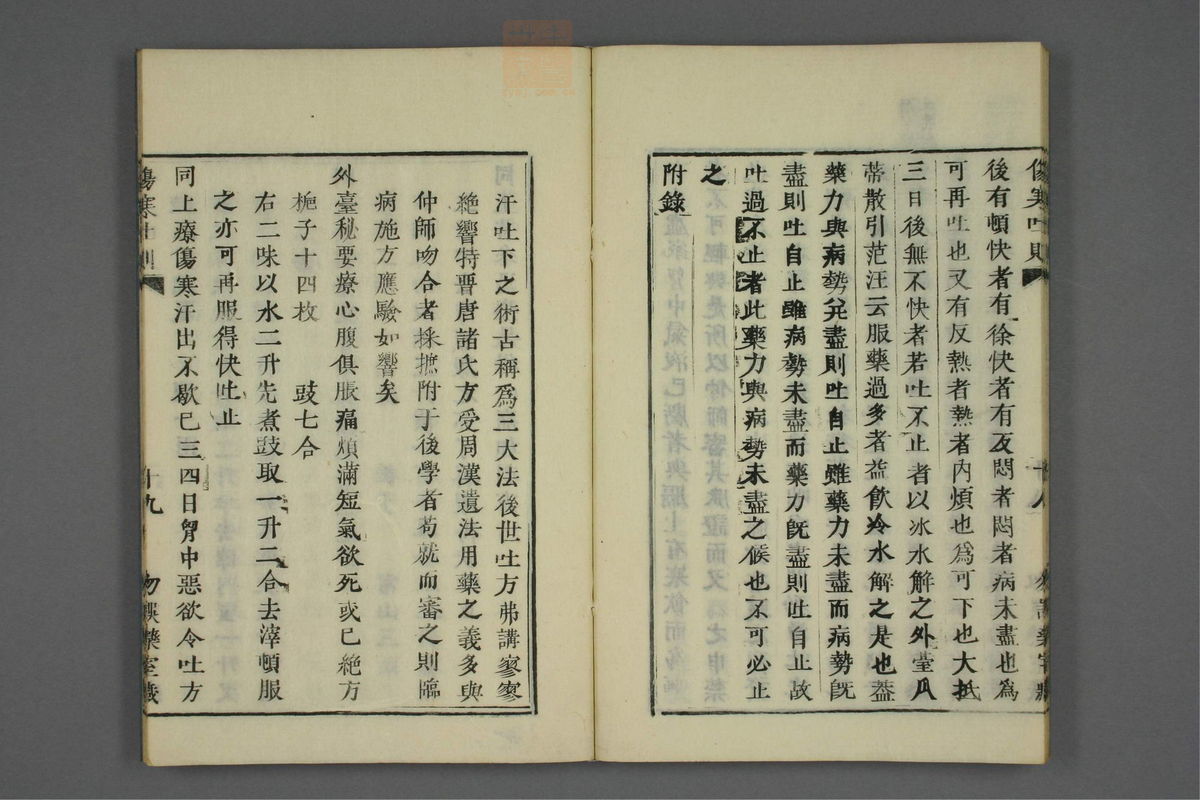 後有頓快者有徐快者有反悶者悶者病未盡也爲
可再吐也又有反熱者熱者內煩也爲可下也大抵
三日後無不快者若吐不止者以冰水解之外臺瓜
蒂散引范汪云服藥過多者益飲冷水解之是也蓋
藥力與病勢兊盡則吐自止雖藥力未盡而病勢旣
盡則吐自止雖病勢未盡而藥力旣盡則吐自止故
吐過不止者此藥力與病勢未盡之候也不可必止
之
附錄
傷寒吐則
十八
汗吐下之術古稱爲三大法後世吐方弗講寥寥
絶響特晋唐諸氏方受周漢遺法用藥之義多與
仲師吻合者採摭附于後學者苟就而審之則臨
病施方應驗如響矣
外臺秘要療心腹俱脹痛煩滿短氣欲死或已絶方
梔子十四枚 豉七合
右二味以水二升先煮豉取一升二合去滓頓服
之亦可再服得快吐止
同上療傷寒汗出不歇已三四日胷中惡欲令吐方
傷寒吐則
十九
勿誤藥室藏